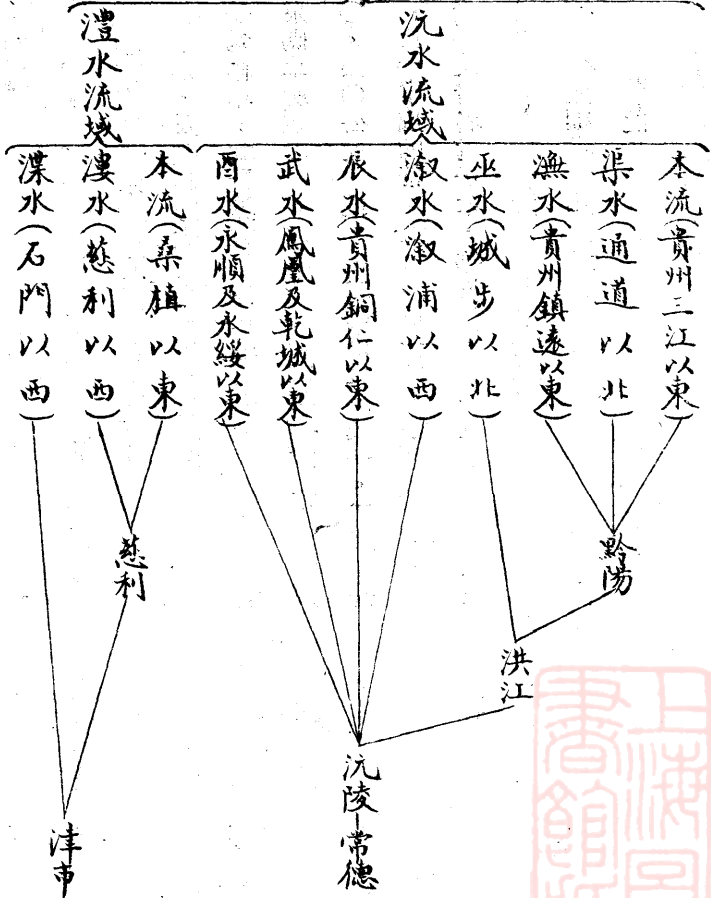 沅水流域
本流(貴州三江以東)
渠水(通道以北)
潕水(貴州鎮遠以東)
巫水(城步以北)
溆水(溆浦以西)
辰水(貴州銅仁以東)
武水(鳳凰及乾城以東)
酉水(永順及永綏以東)
黔陽
洪江
沅陵-常德
澧水流域
本流(桑植以東)
漊水(慈利以西)
渫水(石門以西)
慈利
津市
上海圖
書館